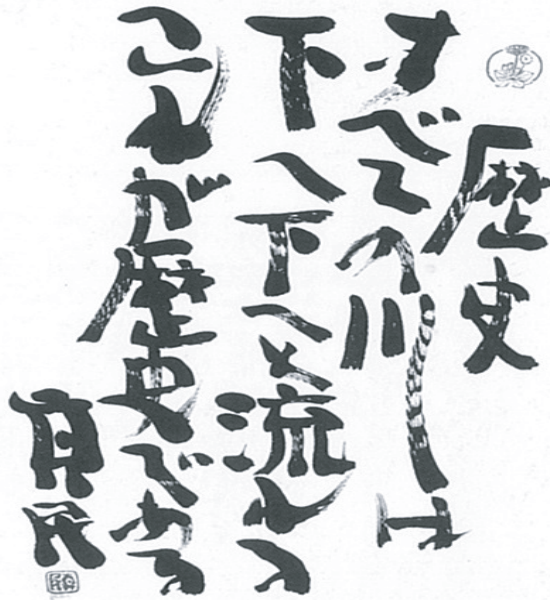 歴史
すべての川は
下へ下へと流れる
これが歴史である
眞民